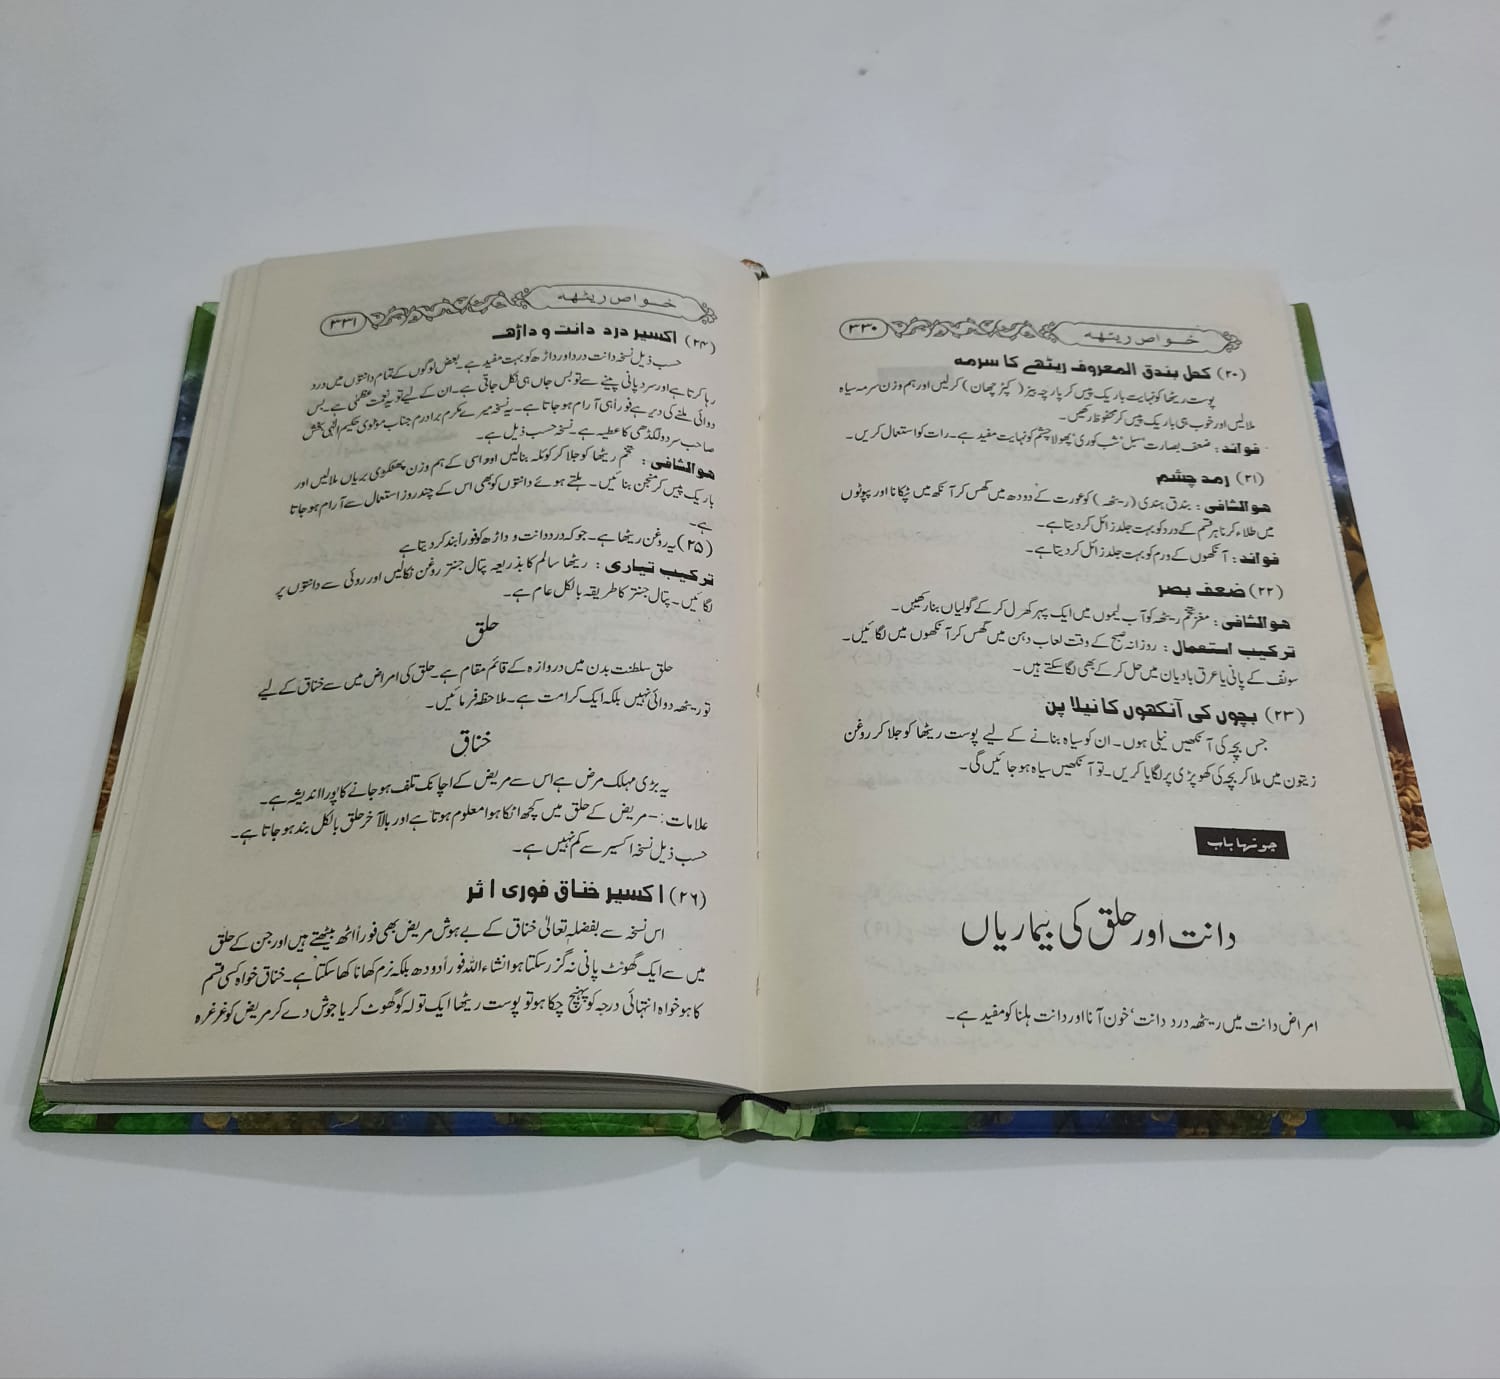 خواص ریٹھہ
۳۳۰
(۲۰) کحل بندق المعروف ریٹھے کا سرمہ
پوست ریٹھا کو نہایت باریک پیس کر پارچہ بیز (کپڑ چھان) کر لیں اور ہم وزن سرمہ سیاہ
ملا لیں اور خوب ہی باریک پیس کر محفوظ رکھیں۔
فوائد : ضعف بصارت‘ سبل‘ شب کوری‘ پھولا چشم کو نہایت مفید ہے۔ رات کو استعمال کریں۔
(۲۱) رمد چشم
ھو الشافی : بندق ہندی (ریٹھہ) کو عورت کے دودھ میں گھس کر آنکھ میں ٹپکانا اور پپوٹوں
میں طلاء کرنا ہر قسم کے درد کو بہت جلد زائل کر دیتا ہے۔
فوائد : آنکھوں کے ورم کو بہت جلد زائل کر دیتا ہے۔
(۲۲) ضعف بصر
ھو الشافی : مغز تخم ریٹھہ کو آب لیموں میں ایک پہر کھرل کر کے گولیاں بنا رکھیں۔
ترکیب استعمال : روزانہ صبح کے وقت لعاب دہن میں گھس کر آنکھوں میں لگائیں۔
سونف کے پانی یا عرق بادیان میں حل کر کے بھی لگا سکتے ہیں۔
(۲۳) بچوں کی آنکھوں کا نیلا پن
جس بچہ کی آنکھیں نیلی ہوں۔ ان کو سیاہ بنانے کے لیے پوست ریٹھا کو جلا کر روغن
زیتون میں ملا کر بچہ کی کھوپڑی پر لگایا کریں۔ تو آنکھیں سیاہ ہو جائیں گی۔
چوتھا باب
دانت اور حلق کی بیماریاں
امراض دانت میں ریٹھہ درد دانت‘ خون آنا اور دانت ہلنا کو مفید ہے۔
خواص ریٹھہ
۳۳۱
(۲۴) اکسیر درد دانت و داڑھ
حسب ذیل نسخہ دانت درد اور داڑھ کو بہت مفید ہے۔ بعض لوگوں کے تمام دانتوں میں درد
رہا کرتا ہے اور سرد پانی پینے سے تو بس جاں ہی نکل جاتی ہے۔ ان کے لیے تو یہ نعمت عظمٰی ہے۔ بس
دوائی ملنے کی دیر ہے فوراً ہی آرام ہو جاتا ہے۔ یہ نسخہ میرے مکرم برادرم جناب مولوی حکیم الٰہی بخش
صاحب سردولگڈھی کا عطیہ ہے۔ نسخہ حسب ذیل ہے۔
ھو الشافی : تخم ریٹھا کو جلا کر کوئلہ بنا لیں اور اسی کے ہم وزن پھٹکڑی بریاں ملا لیں اور
باریک پیس کر منجن بنائیں۔ ہلتے ہوئے دانتوں کو بھی اس کے چند روز استعمال سے آرام ہو جاتا
ہے۔
(۲۵) یہ روغن ریٹھا ہے۔ جو کہ درد دانت و داڑھ کو فوراً بند کر دیتا ہے
ترکیب تیاری : ریٹھا سالم کا بذریعہ پتال جنتر روغن نکالیں اور روئی سے دانتوں پر
لگائیں۔ پتال جنتر کا طریقہ بالکل عام ہے۔
حلق
حلق سلطنت بدن میں دروازہ کے قائم مقام ہے۔ حلق کی امراض میں سے خناق کے لیے
تو ریٹھہ دوائی نہیں بلکہ ایک کرامت ہے۔ ملاحظہ فرمائیں۔
خناق
یہ بڑی مہلک مرض ہے اس سے مریض کے اچانک تلف ہو جانے کا پورا اندیشہ ہے۔
علامات :- مریض کے حلق میں کچھ اٹکا ہوا معلوم ہوتا ہے اور بالآخر حلق بالکل بند ہو جاتا ہے۔
حسب ذیل نسخہ اکسیر سے کم نہیں ہے۔
(۲۶) اکسیر خناق فوری اثر
اس نسخہ سے بفضلہٖ تعالیٰ خناق کے بے ہوش مریض بھی فوراً اٹھ بیٹھتے ہیں اور جن کے حلق
میں سے ایک گھونٹ پانی نہ گزر سکتا ہو انشاء اللہ فوراً دودھ بلکہ نرم کھانا کھا سکتا ہے۔ خناق خواہ کسی قسم
کا ہو خواہ انتہائی درجہ کو پہنچ چکا ہو تو پوست ریٹھا ایک تولہ کو گھوٹ کر یا جوش دے کر مریض کو غرغرہ